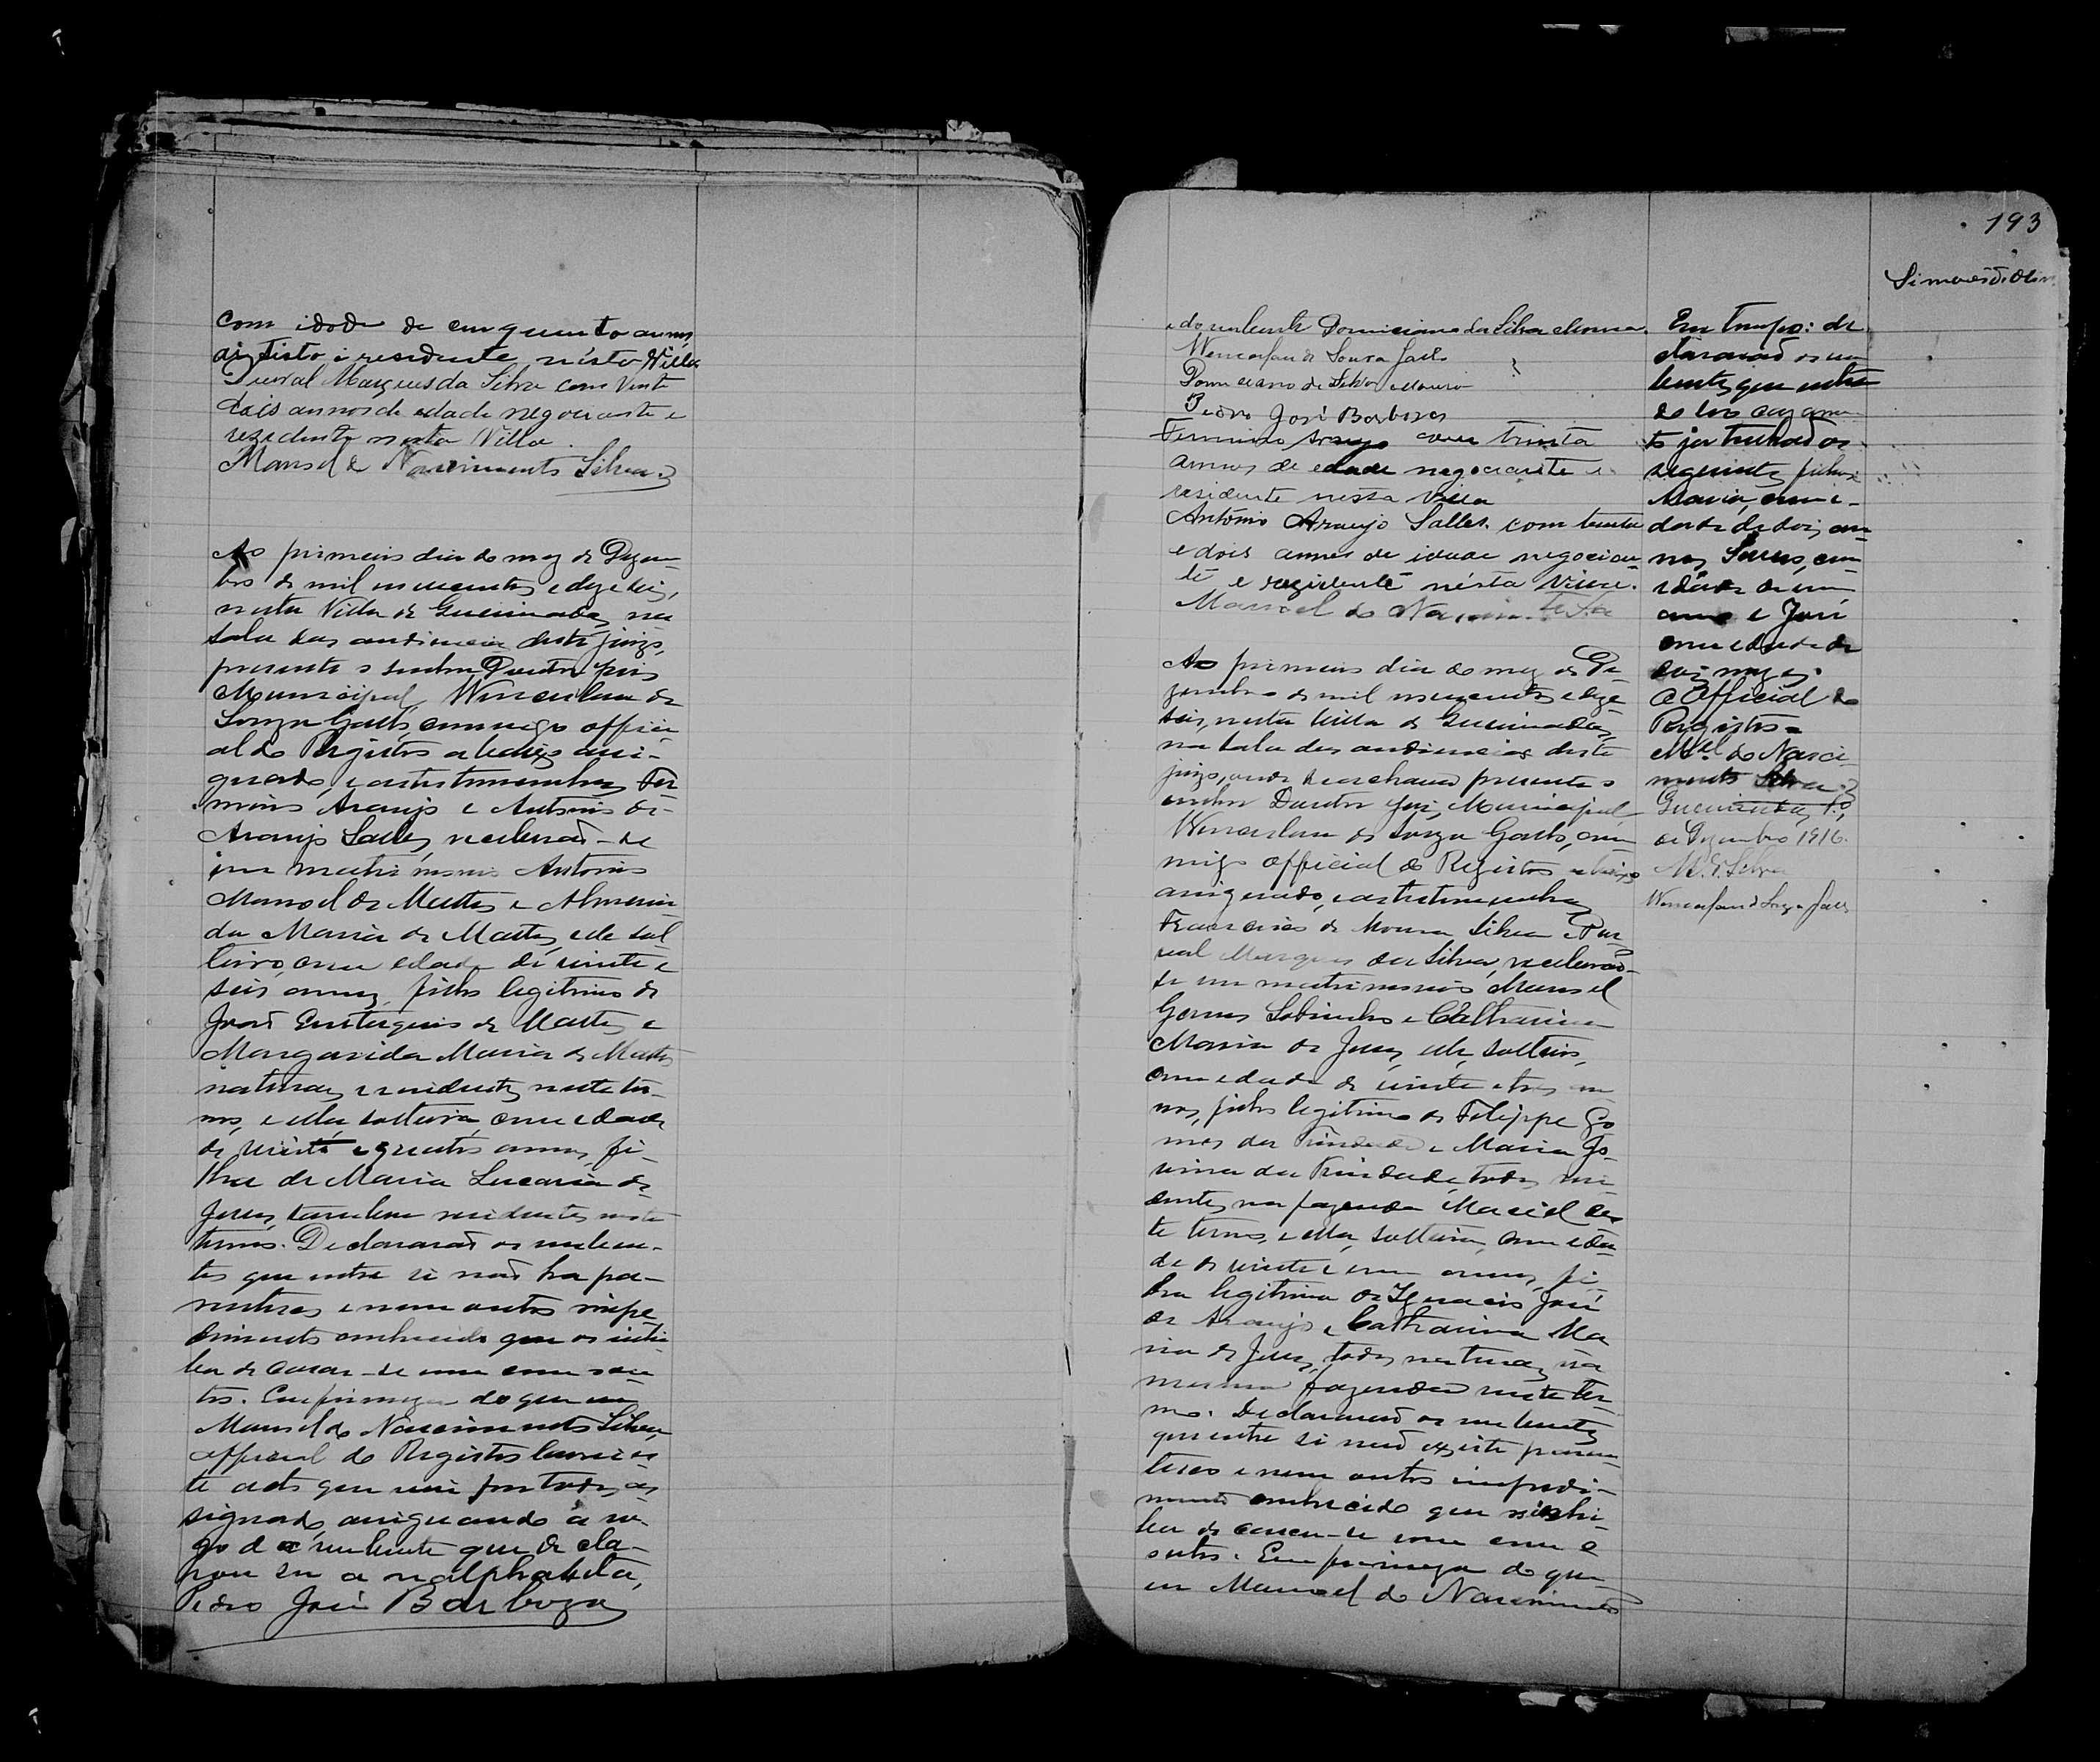 com idade de cinquenta annos,
artisto i residente nésta Villa.
Durval Marques da Silva com vinte
dois annos de edade negociante e
rezidente nesta Villa.
Manoel do Nascimento Silva
Ao primeiro dia do mez de Dezem-
bro de mil novecentos e dezeseis,
nesta Villa de Queimadas, na
sala das audiencias deste juizo,
presente o senhor Doutor Juiz
Municipal, Wenceslau de
Souza Gallo, commigo offici
al do Registro abaixo assi-
gnado, e as testemunhas Fir
mino Araujo e Antonio de
Araujo Salles, receberaõ-se
em matrimonio Antonio
Manoel de Mattos e Almerin
da Maria de Mattos, elle sol
teiro, com edade de vinte e
seis annos, filho legitimo de
José de Mattos e
Margarida Maria de Mattos
naturaes e residentes neste ter-
mo, e ella, solteira, com edade
de vinte e quatro annos, fi-
lha de Maria Lucaria de
Jesus, tambem residentes neste
termo. Declararaõ os nuben-
tes que entre si naõ ha pa-
rentesco e nem outro impe
dimento conhecido que os inhi-
ba de casar-se um com ou
tro. Em firmeza do que eu
Manoel do Nascimento Silva,
official do Registro lavrei es
te acto que vai por todos as
signado, assignando á ro-
go da nubente que decla-
rou ser analphabeta,
Pedro José Barboza
193
e do nubente Domiciano da Silva Moura.
Wenceslau de Souza Gallo
Domiciano da Silva Moura
Pedro José Barboza
Firmino Araujo com trinta
annos de edade negociante e
residente nessa Villa
António Araujo Salles. com trinta
e dois annos de idade negocian-
te e rezidente nésta Villa.
Manoel do Nascimento
Ao primeiro dia do mez de De-
zembro de mil novecentos e deze
seis, nesta Villa de Queimadas,
na sala das audiencias deste
juizo, onde se achava presente o
senhor Doutor Juiz Municipal
Wenceslau de Souza Gallo, com
migo official do Registro abaixo
assignado, e as testemunhas
Francisco de Moura Silva e Dur
val Marques da Silva, receberaõ-
se em matrimonio Manoel
Gomes Sobrinho e Catharina
Maria de Jesus, elle, solteiro,
com edade de vinte e tres an
nos, filho legitimo de Felippe Go
mes da Trindade e Maria Jo-
vina da Trindade, todos resi-
dentes na fazenda Maciel des
te termo, e ella, solteira, com eda-
de de vinte e um annos, fi-
lha legitima de Ignacio José
de Araujo e Catharina Ma
ria de Jesus, todos naturaes na
mesma fazenda neste ter-
mo. Declararaõ os nubentes
que entre si naõ existe paren-
tesco e nem outro impedi-
mento conhecido que os inhi-
ba de casar-se um com o
outro. Em firmeza do que
eu Manoel do Nascimento
Em tempo: de
clararaõ os nu
bentes que antes
do seu casamen
to ja tinhaõ os
seguintes filhos:
Maria, com i-
dade de dois an-
nos, com
idade de um
anno e José
com edade de
dois mezes.
O Official do
Registro
Mel. do Nasci-
mento Silva
Queimadas, 1º
de Dezembro 1916.
M. N. Silva
Wenceslau de Souza Gallo